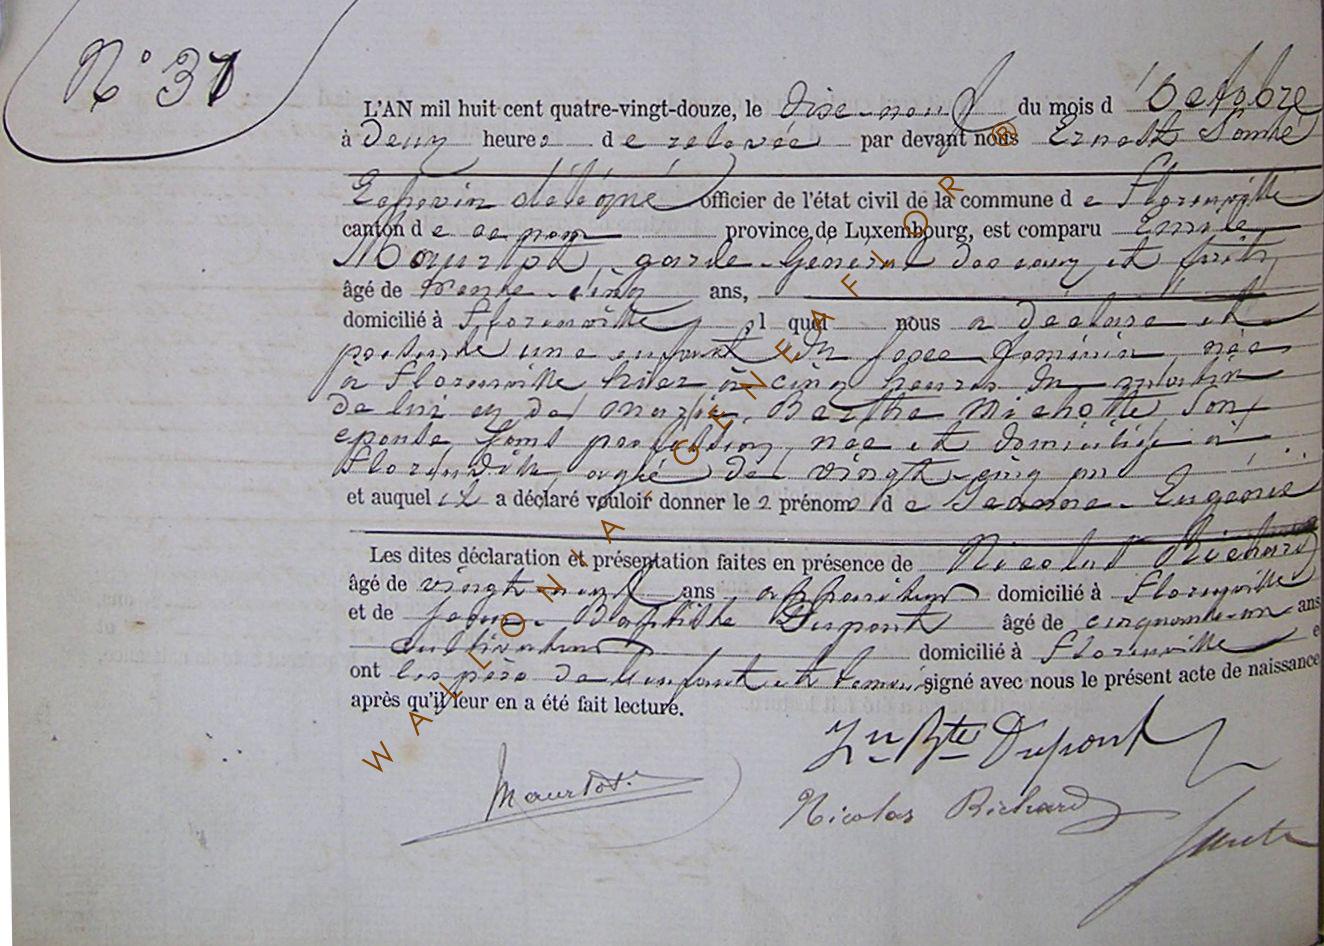 N° 37
L'AN mil huit cent quatre-vingt-douze, le dise-neuf du mois d'Octobre
à Deux heures de relevée par devant nous Ernest
Echevin délégué officier de l'état civil de la commune de Florenville
canton de ce nom province de Luxembourg, est comparu Emile
Mourtot, garde-Général des eaux et forêts,
âgé de trente-cinq ans,
domicilié à Florenville, lequel nous a déclaré et
présenté une enfant du sexe féminin, née
à Florenville hier à cinq heures du matin
de lui et de Marie, Berthe Michotte son
épouse sans profession, née et domiciliée à
Florenville agée de vingt-cinq ans
et auquel il a déclaré vouloir donner les 2 prénoms de Jeanne-Eugénie
Les dites déclaration et présentation faites en présence de Nicolas Richard
âgé de vingt neuf ans appariteur domicilié à Florenville
et de Jean-Baptiste Dupont âgé de cinquante-un ans
cultivateur domicilié à Florenville
ont les père de l'enfant et témoins signé avec nous le présent acte de naissance
après qu'il leur en a été fait lecture.
Jn Bte Dupont
Mourtot
Nicolas Richard
WALLONIA GENEAFLOR ®